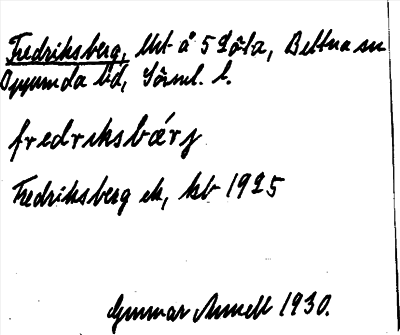 Fredriksberg, lht å 5 Låta, Bettna sn
Oppunda hd, Södml. l.
fredriksbærj
Fredriksberg ek, kb 1925
Gunnar Annell 1930.